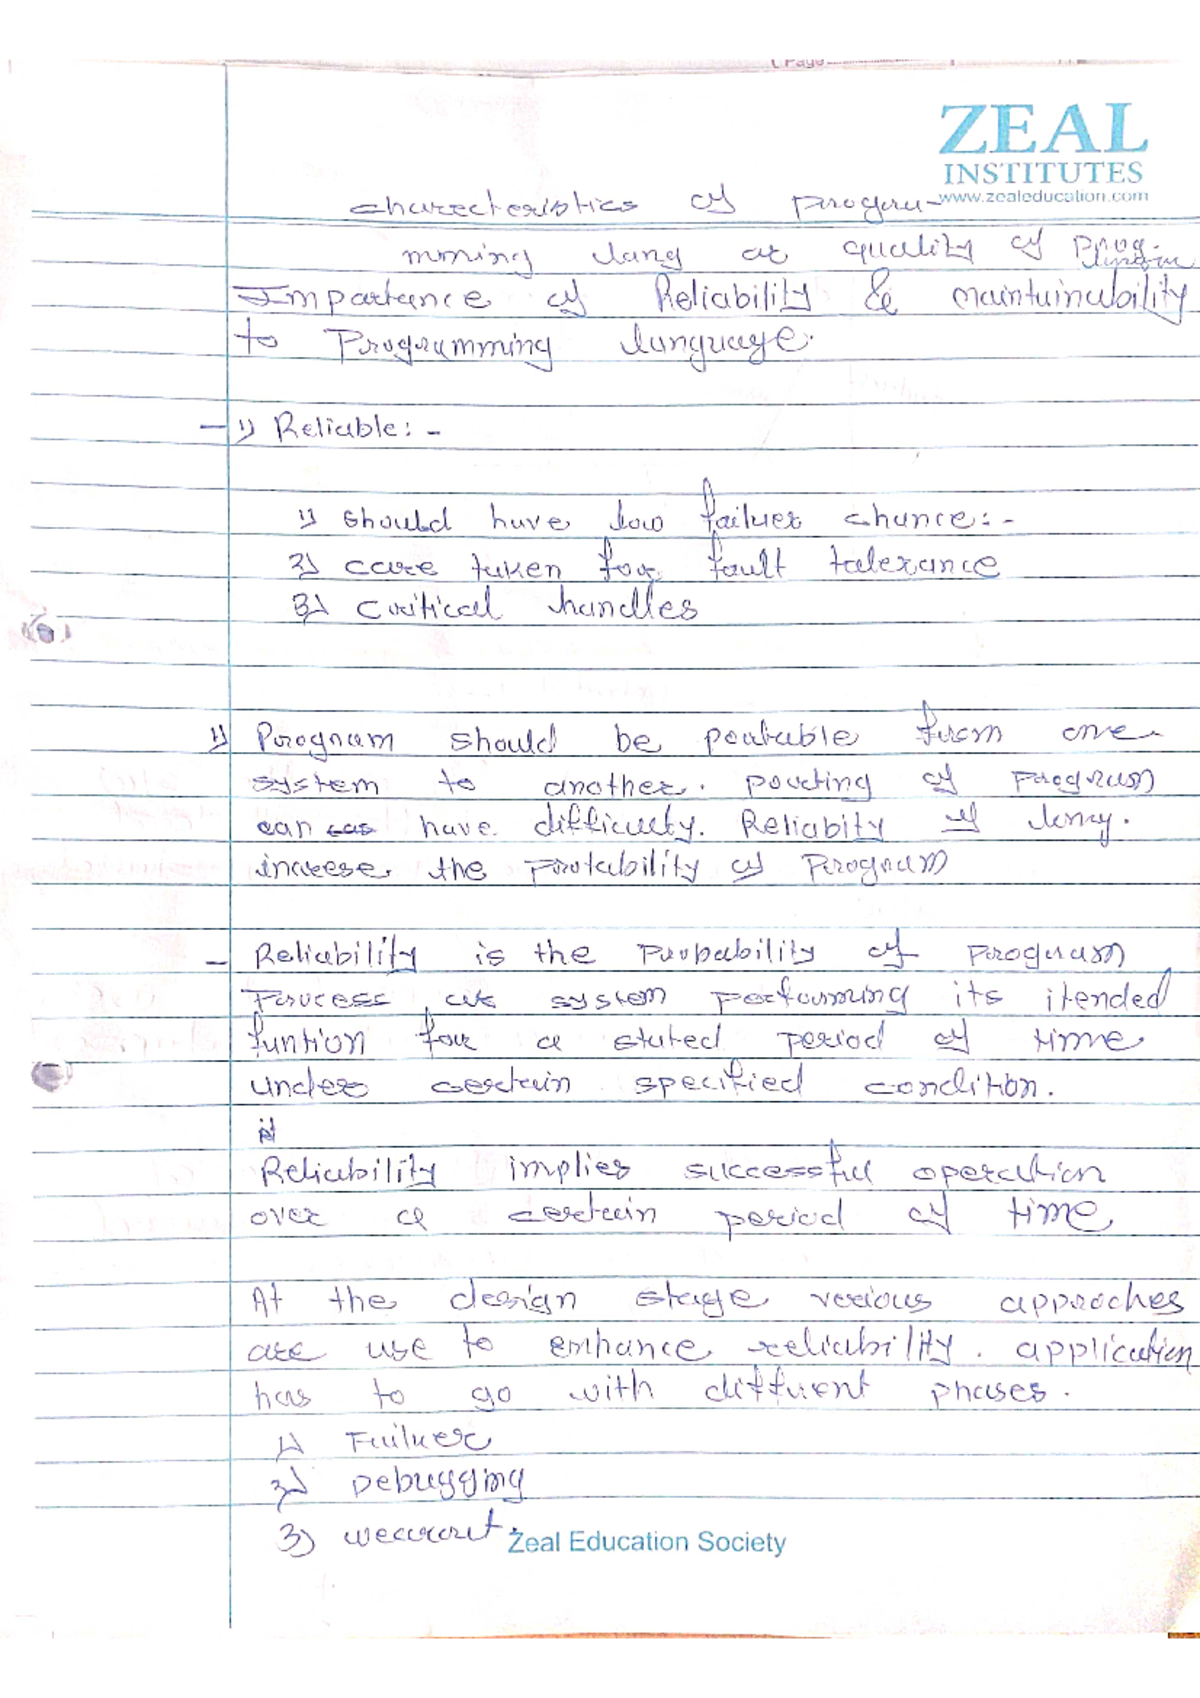 Page
ZEAL
INSTITUTES
www.zealeducation.com
charecteristics of progra-
mming lang or quality of prog.
Importance of Reliability & maintainability
to Programming language.
- 1) Reliable: -
1) should have low failuer chance: -
2) care tuken for fault talerance
3) critical handles
1) Program should be portable from one
system to another. porting of program
can have difficulty. Reliabity of lang.
increse the protability of Program
- Reliability is the Probability of program
Process or system performing its itended
funtion for a stated period of time
under certain specified condition.
Reliability implies successful operation
over a certain period of time
At the design stage verious approches
are use to enhance reliability. application
has to go with diffrent phases.
1) Failuer
2) Debugging
3) wearout.
Zeal Education Society